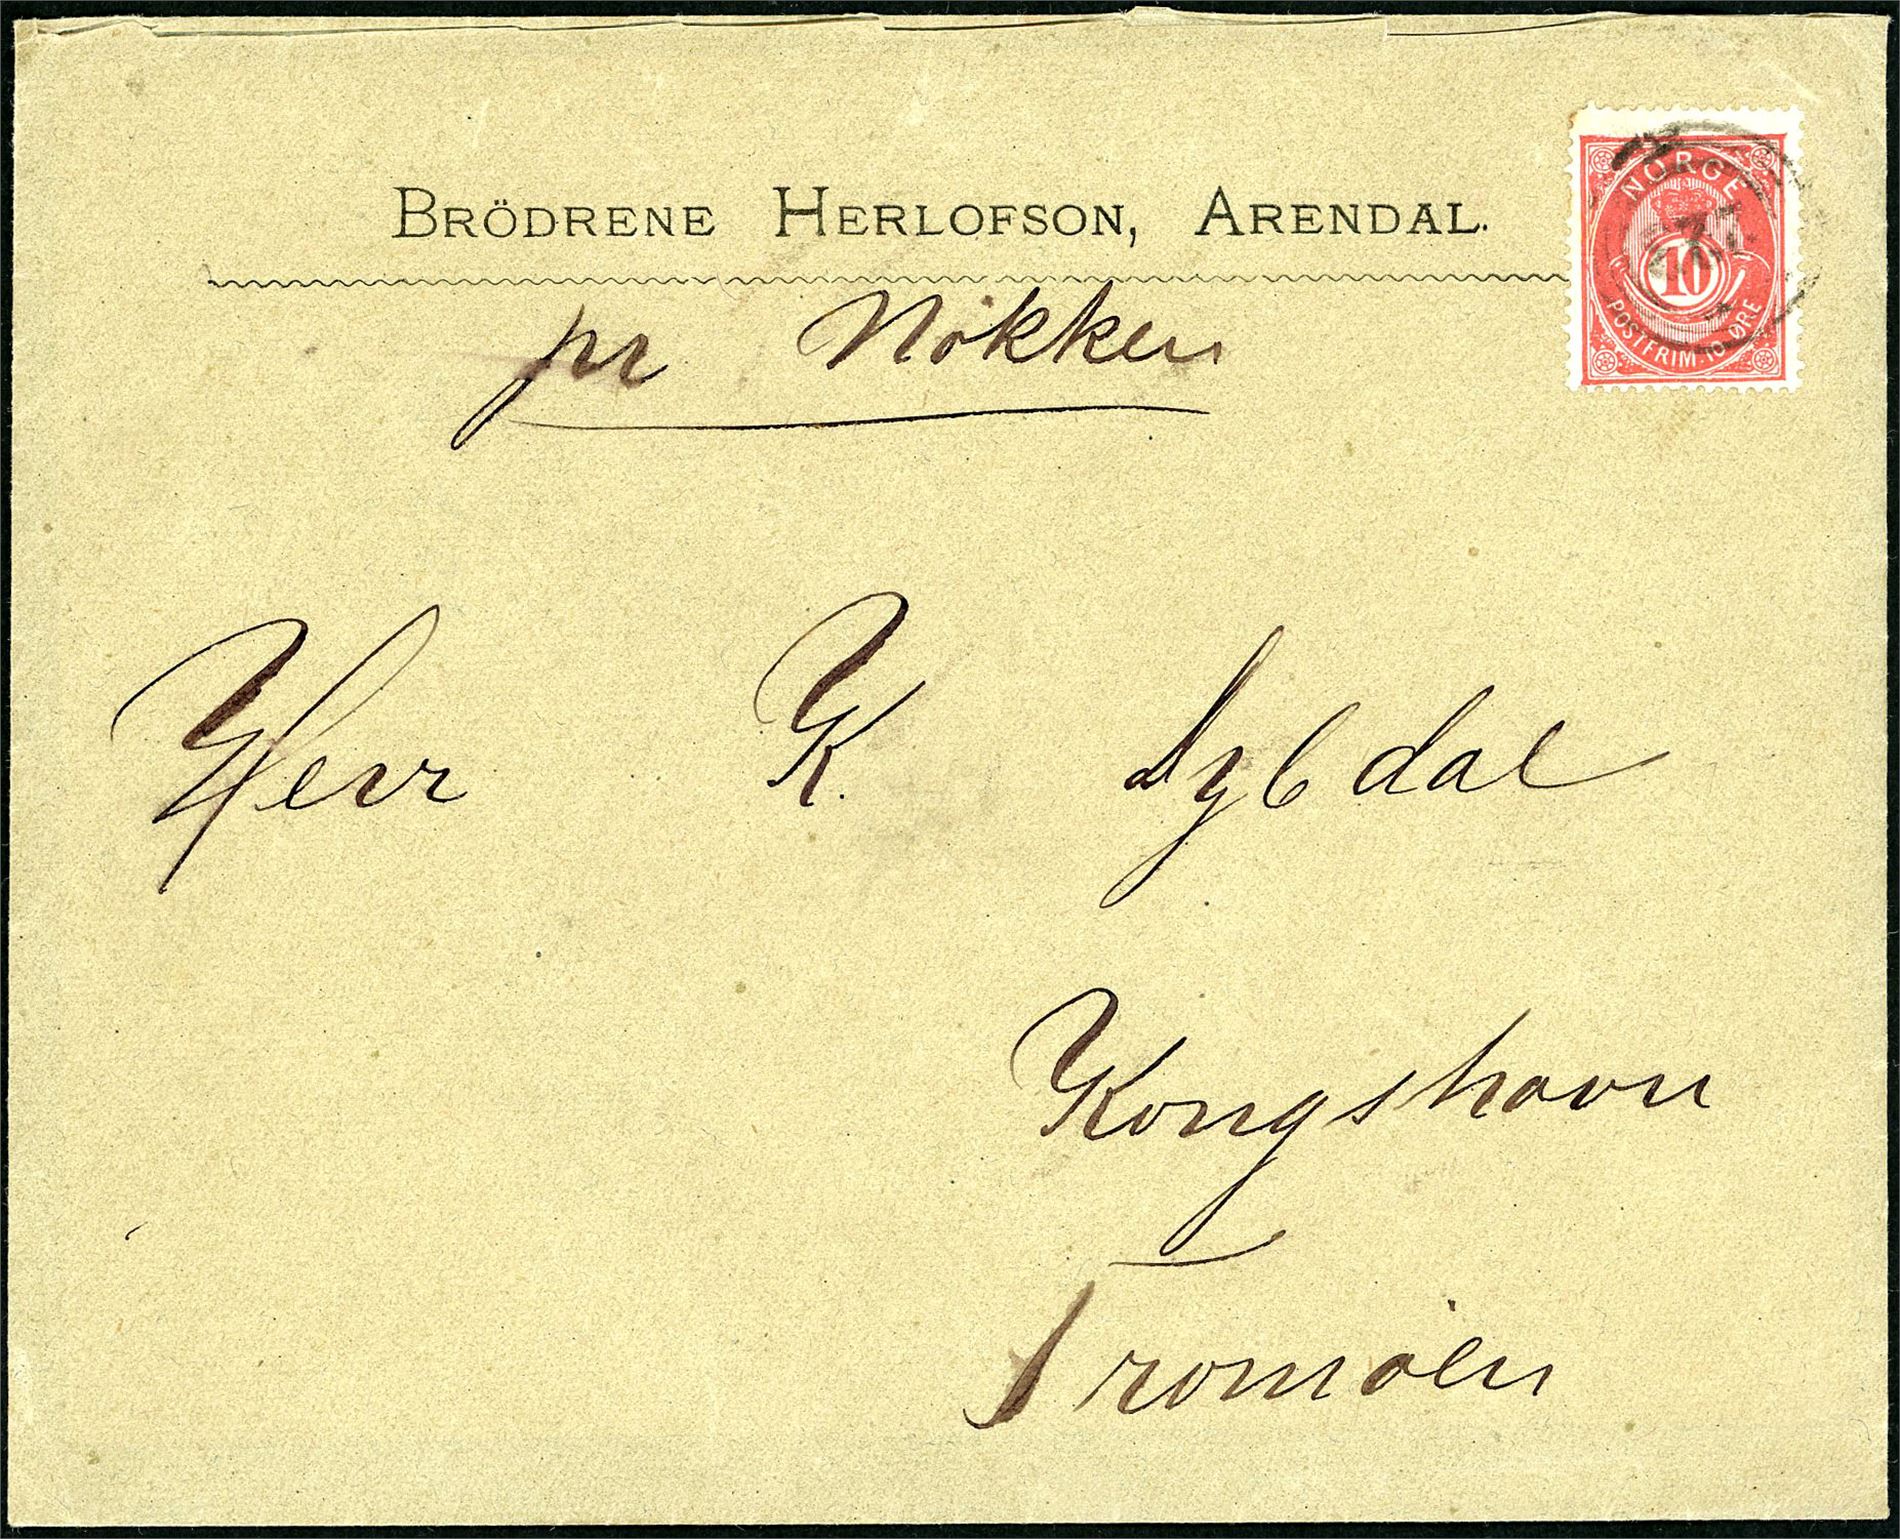 BRÖDRENE HERLOFSON, ARENDAL.
NORGE
10
POSTFRIM. 10 ØRE
pr Nökken
Herr K. Dybdal
Kongshavn
Tromöen